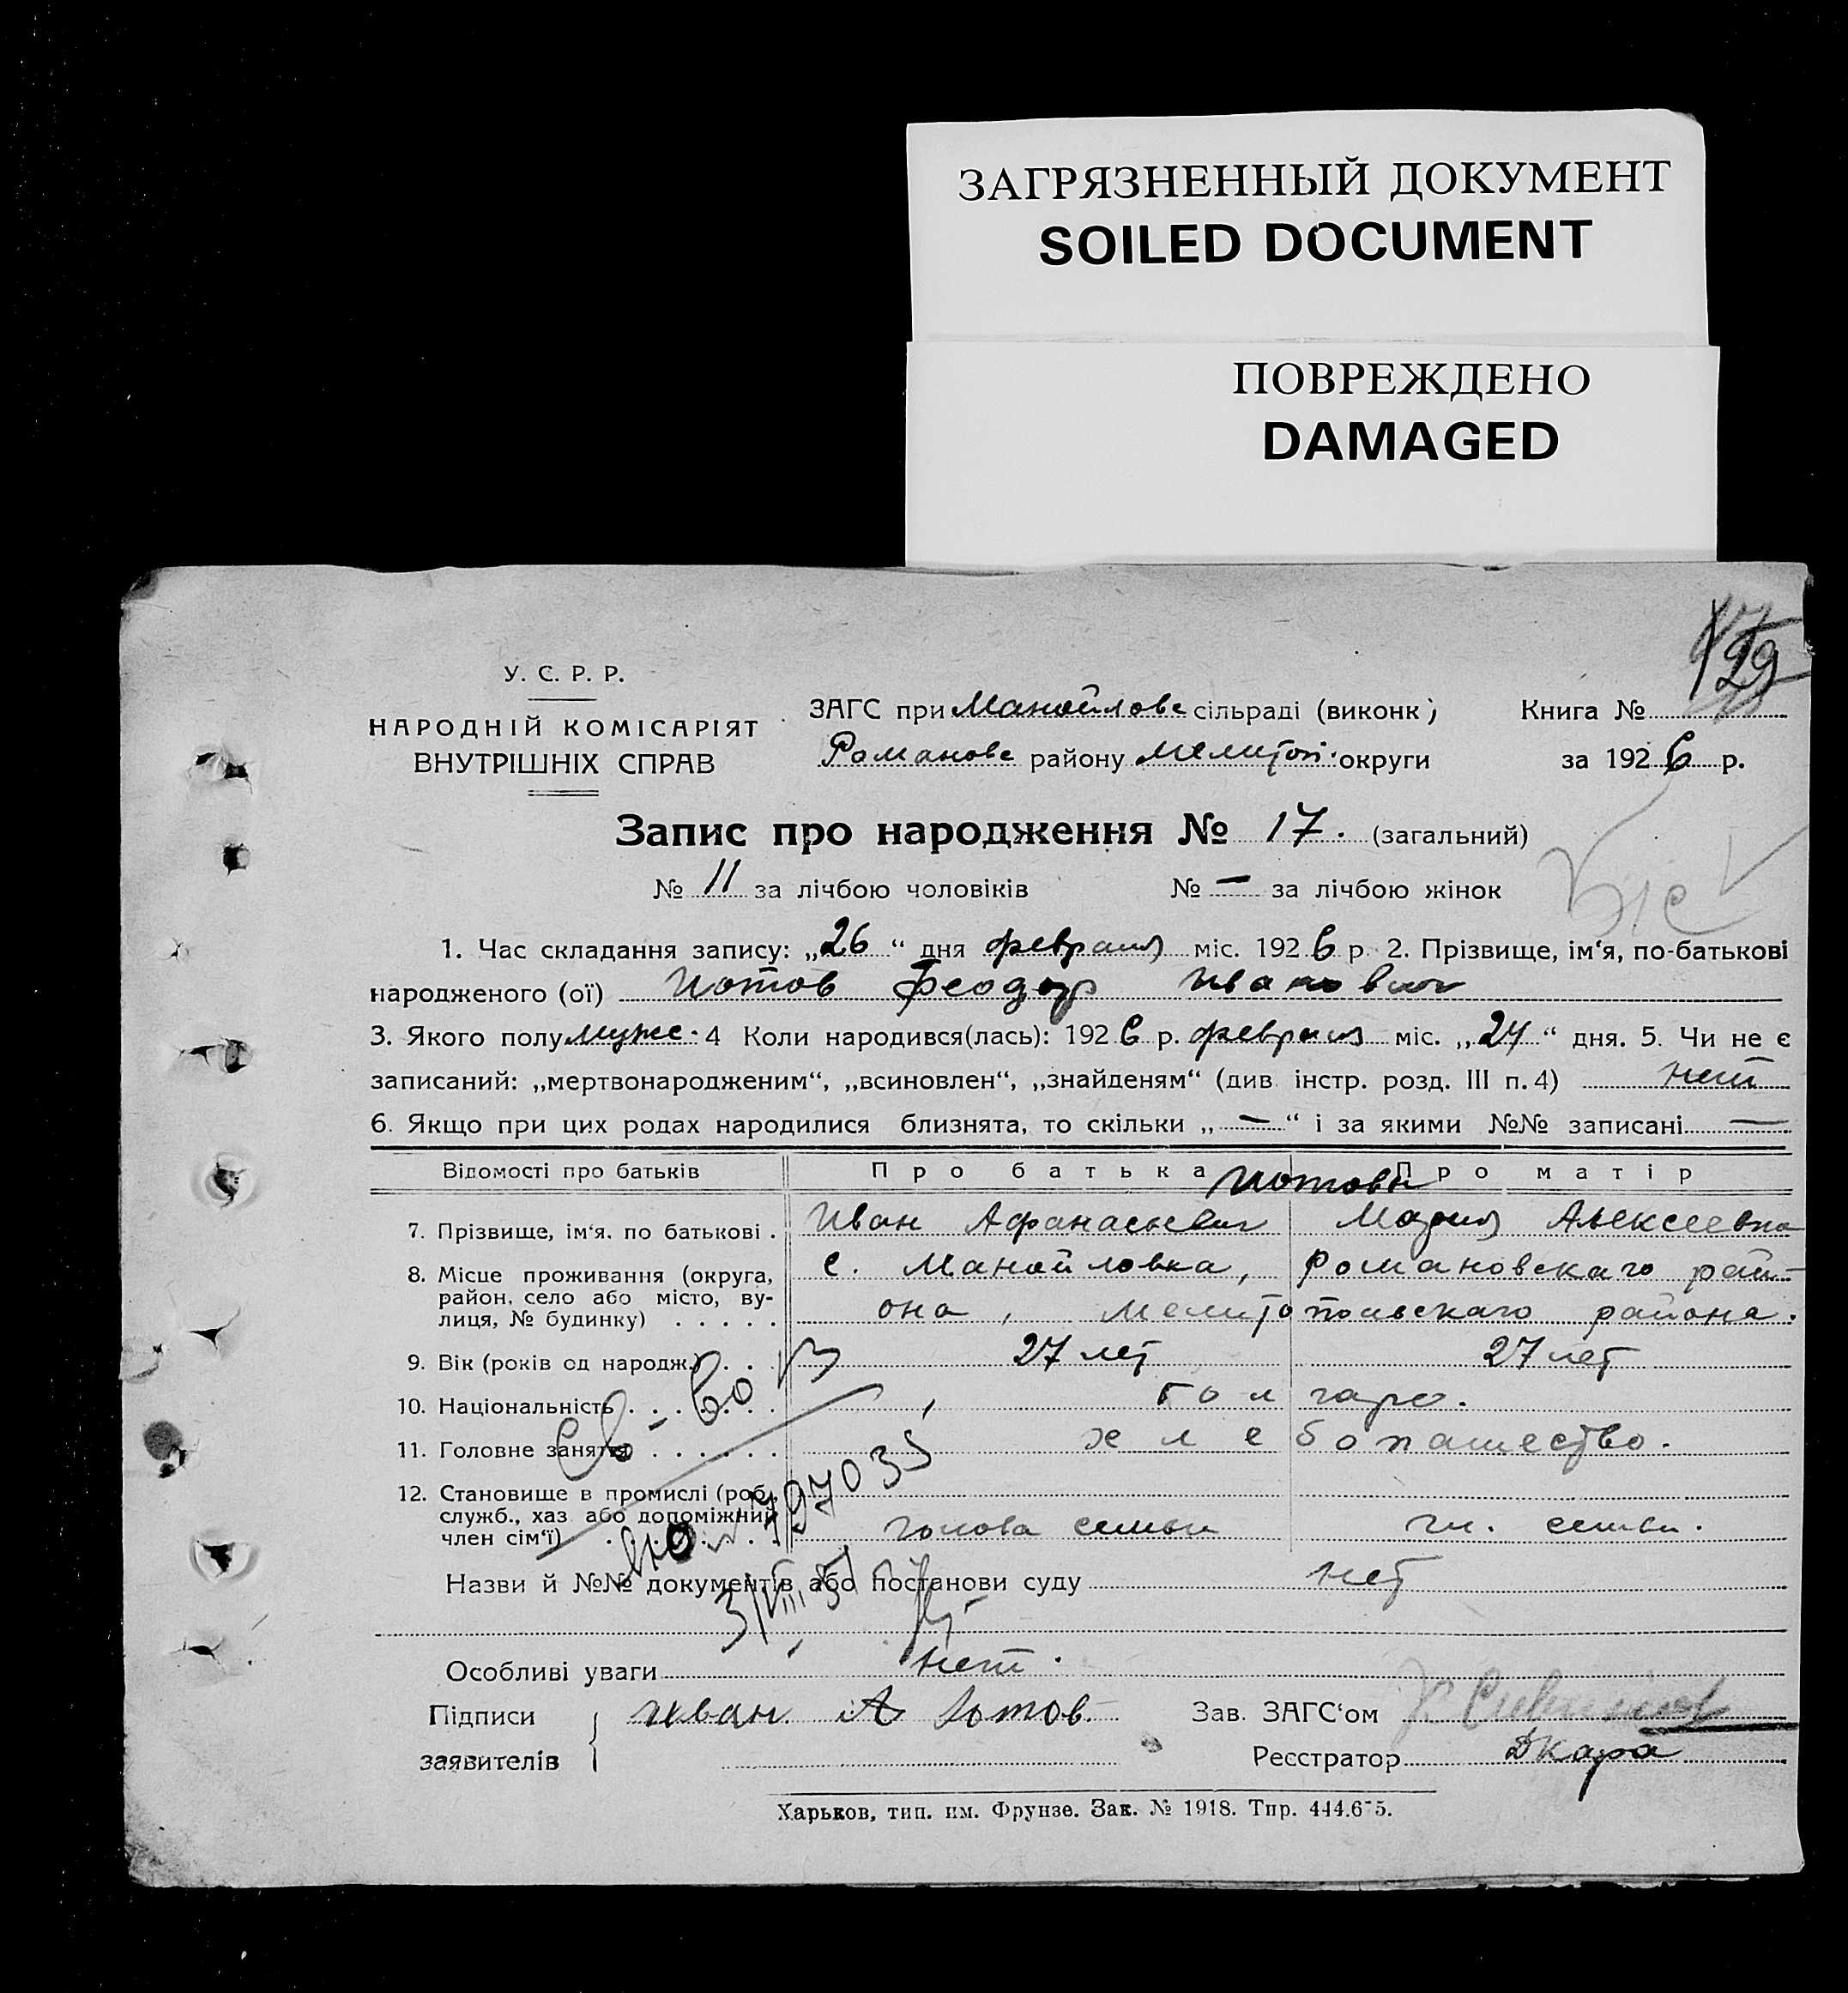 ЗАГРЯЗНЕННЫЙ ДОКУМЕНТ
SOILED DOCUMENT
ПОВРЕЖДЕНО
DAMAGED
У. С. Р. Р.
НАРОДНІЙ КОМІСАРІЯТ
ВНУТРІШНІХ СПРАВ
ЗАГС при Манойловс сільраді (виконк.) Книга №
Романовс району Мелитоп. округи за 1926 р.
Запис про народження № 17. (загальний)
№ 11 за лічбою чоловіків № — за лічбою жінок
1. Час складання запису: „26“ дня февраля міс. 1926 р. 2. Прізвище, ім‘я, по-батькові
народженого (ої) Иотов Феодор Иванович
3. Якого полу мужс. 4 Коли народився(лась): 1926 р. февраля міс. „24“ дня. 5. Чи не є
записаний: „мертвонародженим“, „всиновлен“, „знайденям“ (див. інстр. розд. III п. 4) нет
6. Якщо при цих родах народилися близнята, то скільки „—“ і за якими №№ записані —
Відомості про батьків Про батька Про матір
Иотовы
7. Прізвище, ім‘я. по батькові . Иван Афанасьевич Мария Алексеевна
8. Місце проживання (округа, район, село або місто, вулиця, № будинку) . . . . . с. Манойловка, Романовскаго рай-
она, Мелитопольскаго района.
9. Вік (років од народж.) . . . 27 лет 27 лет
10. Національність . . . . . . болгаре.
11. Головне заняття . . . . . . хлебопашество.
12. Становище в промислі (роб., служб., хаз. або допоміжний член сім‘ї) . . . . . . голова семьи чл. семьи.
св-во
797035
Назви й №№ документів або постанови суду нет
Особливі уваги нет.
Підписи заявителів Иван А Иотов. Зав. ЗАГС‘ом
Реєстратор ДКара
Харьков, тип. им. Фрунзе. Зак. № 1918. Тир. 444.675.